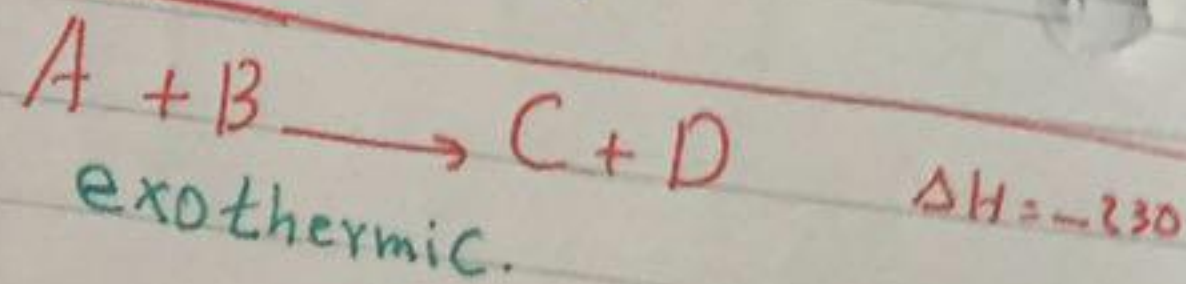 A + B → C + D ΔH = -230
exothermic.